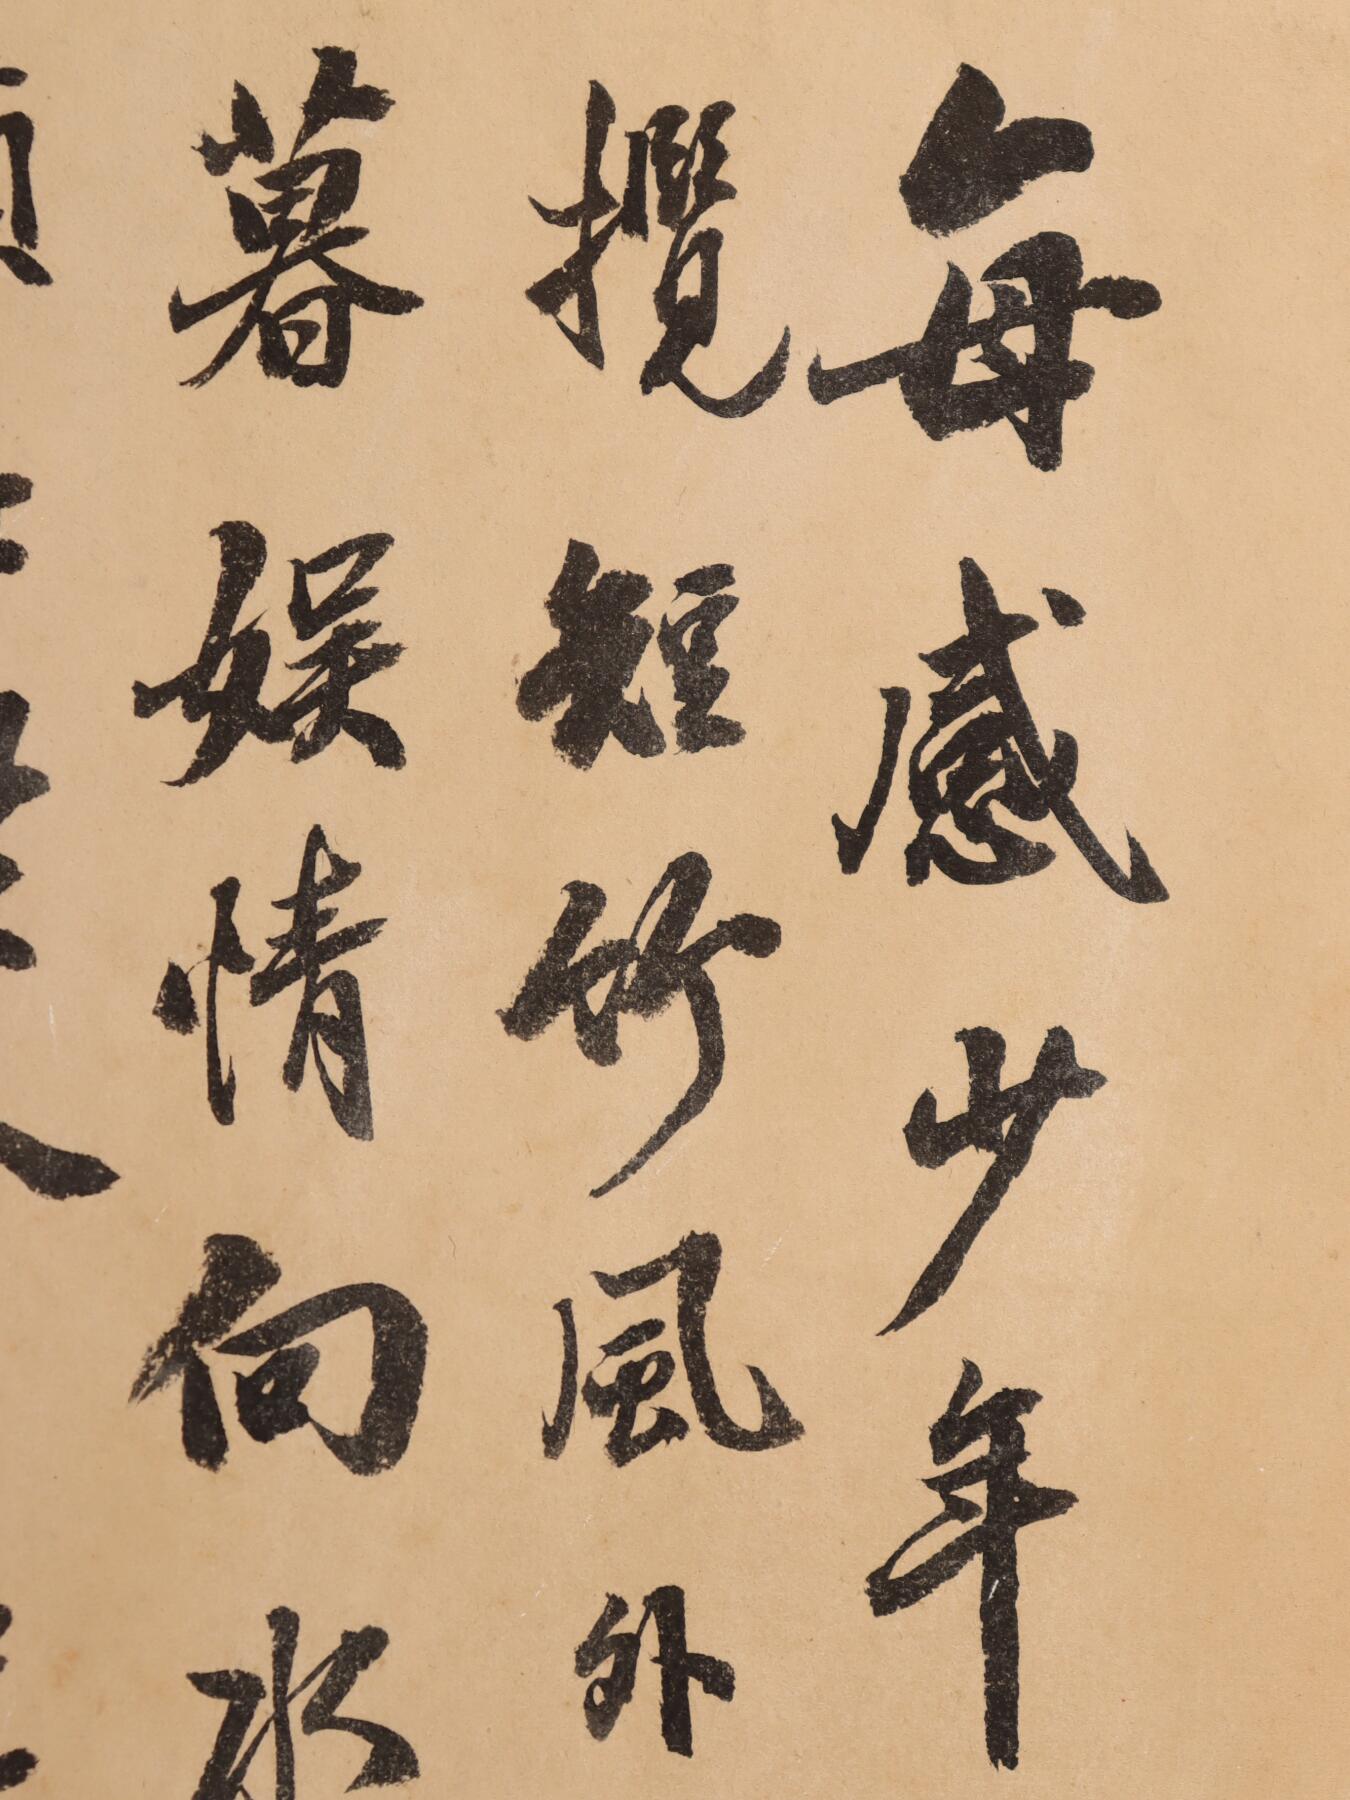 每感少年
攬短竹風外
暮娛情向水